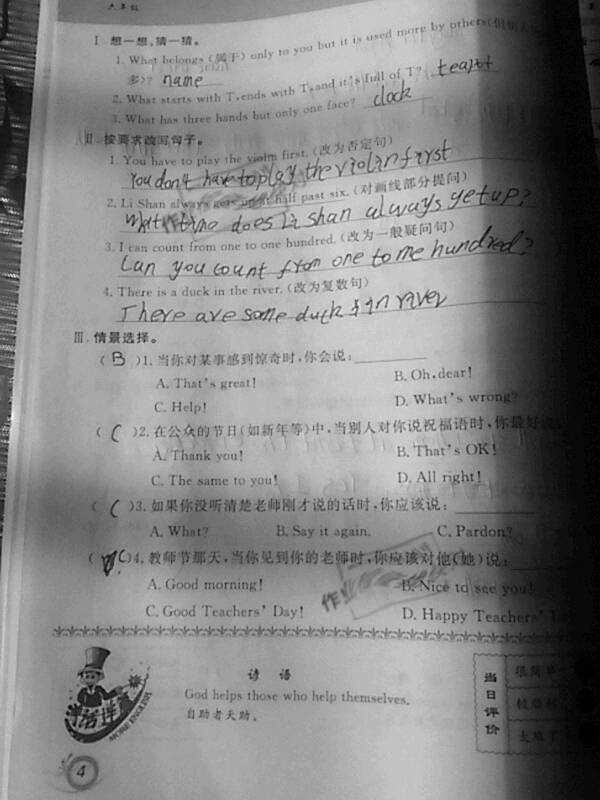 六年级
Ⅰ.想一想,猜一猜。
1. What belongs (属于) only to you but it is used more by others(但别人
多)? name
2. What starts with T, ends with T, and it's full of T? teapot
3. What has three hands but only one face? clock
Ⅱ.按要求改写句子。
1. You have to play the violin first.(改为否定句)
You don't have to play the violin first
2. Li Shan always gets up at half past six.(对画线部分提问)
What time does Li shan always get up?
3. I can count from one to one hundred.(改为一般疑问句)
Can you count from one to me hundred?
4. There is a duck in the river.(改为复数句)
There are some ducks in river
Ⅲ.情景选择。
( B )1.当你对某事感到惊奇时,你会说:
A. That's great! B. Oh, dear!
C. Help! D. What's wrong?
( C )2.在公众的节日(如新年等)中,当别人对你说祝福语时,你最好说
A. Thank you! B. That's OK!
C. The same to you! D. All right!
( C )3.如果你没听清楚老师刚才说的话时,你应该说:
A. What? B. Say it again. C. Pardon?
( C)4.教师节那天,当你见到你的老师时,你应该对他(她)说:
A. Good morning! B. Nice to see you!
C. Good Teachers' Day! D. Happy Teachers'
谚语
God helps those who help themselves.
自助者天助。
MORE ENGLISH
当日评价
很简单
较顺利
太难了
4